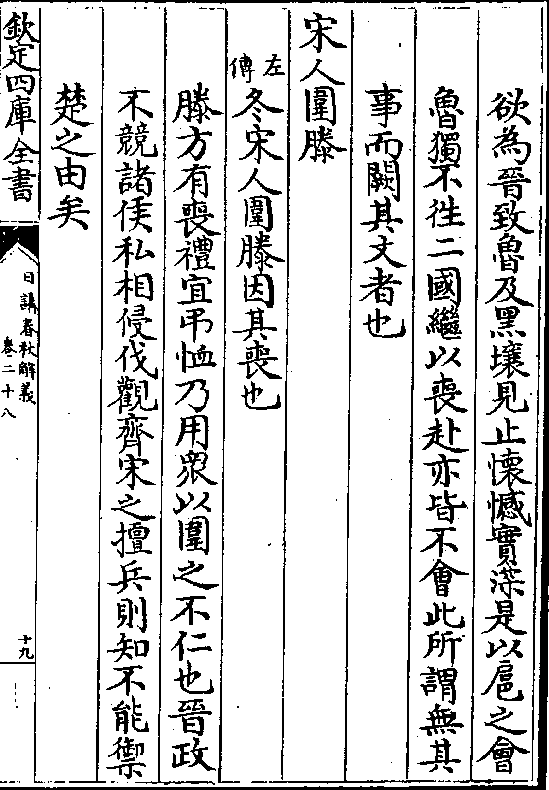 欲為晉致魯及黑壤見止懷憾實深是以扈之會
魯獨不徃二國繼以喪赴亦皆不會此所謂無其
事而闕其文者也
宋人圍滕
左傳冬宋人圍滕因其喪也
滕方有喪禮宜弔恤乃用眾以圍之不仁也晉政
不競諸侯私相侵伐觀齊宋之擅兵則知不能禦
楚之由矣
欽定四庫全書
日講春秋解義
卷二十八
十九